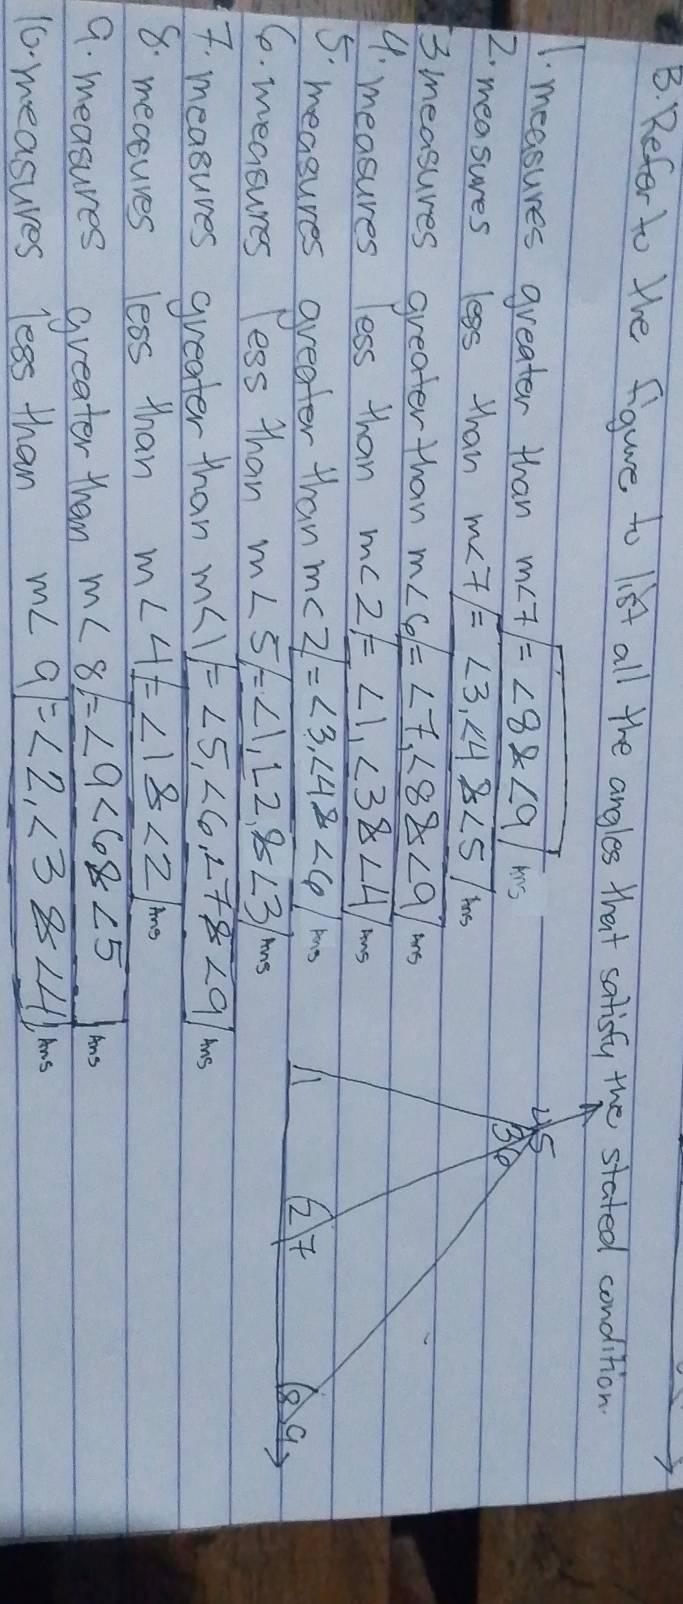 B. Refer to the figure to list all the angles that satisfy the stated condition.
1. measures greater than m<7 = <8 & <9 Ans
2. measures less than m<7 = <3, <4 & <5 Ans
3 measures greater than m<6 = <7, <8 & <9 Ans
4. measures less than m<2 = <1, <3 & <4 Ans
5. measures greater than m<2 = <3, <4 & <6 Ans
6. measures less than m<5 = <1, <2, & <3 Ans
7. measures greater than m<1 = <5, <6, <7 & <9 Ans
8. measures less than m<4 = <1 & <2 Ans
9. measures greater than m<8 = <9 <6 & <5 Ans
10. measures less than m<9 = <2, <3 & <4, Ans
4 5
3 6
1 2 7 8 9